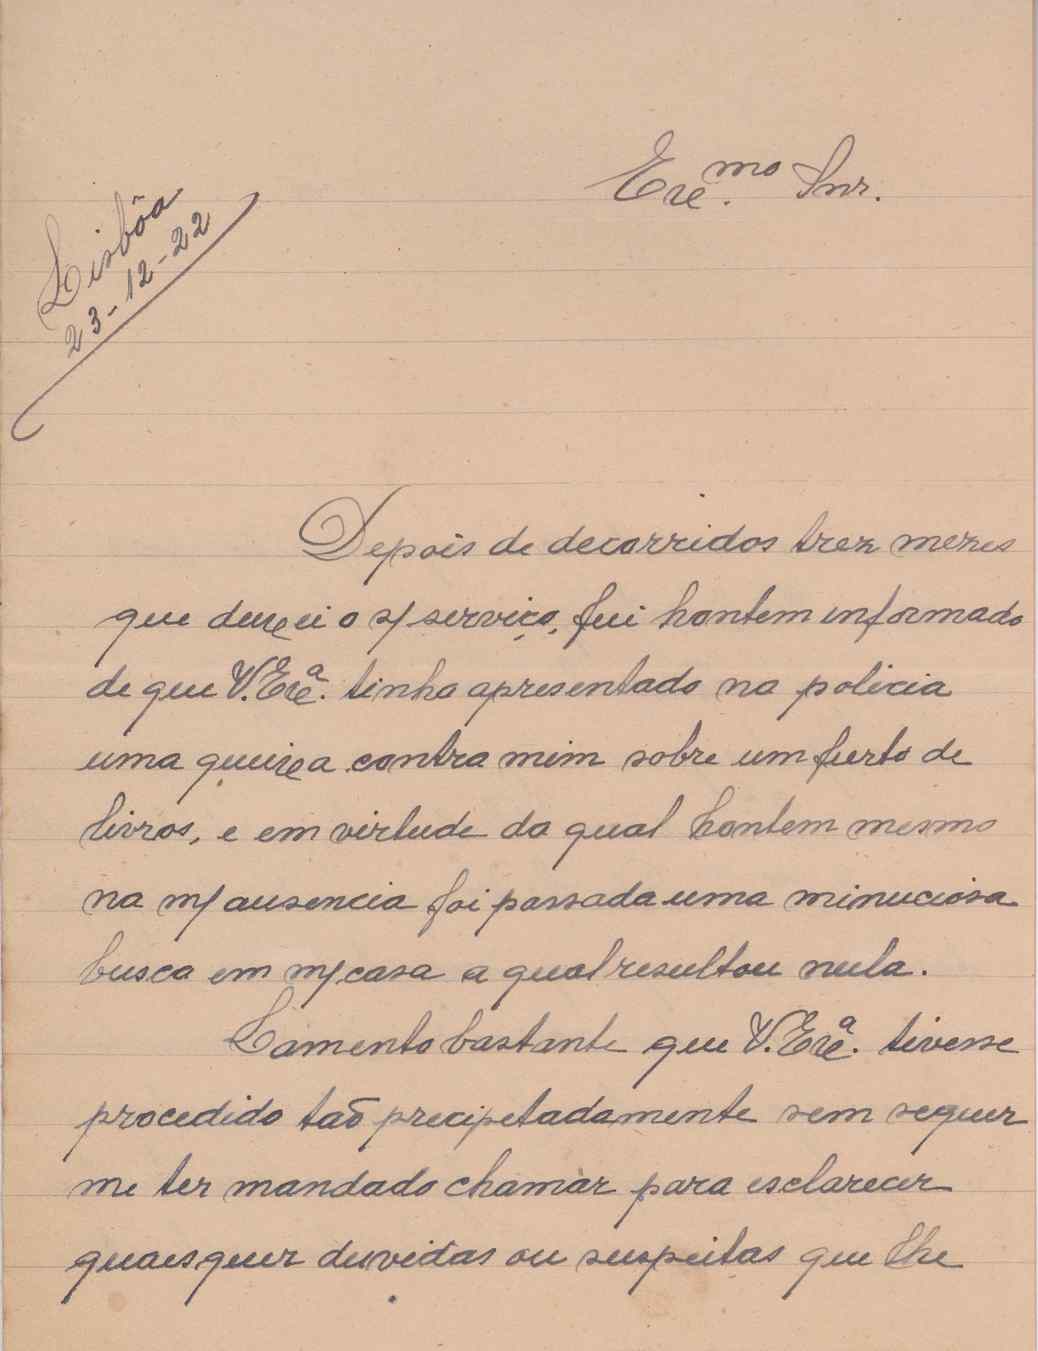 Lisbôa
23-12-22
Exc.mo Snr.
Depois de decorridos trez mezes
que deixei o s/ serviço, fui hontem informado
de que V. Exc.ª tinha apresentado na policia
uma queixa contra mim sobre um furto de
livros, e em virtude da qual hontem mesmo
na m/ ausencia foi passada uma minuciosa
busca em m/ casa a qual resultou nula.
Lamento bastante que V. Exc.ª tivesse
procedido taõ precipetadamente sem sequer
me ter mandado chamar para esclarecer
quaesquer duvidas ou suspeitas que lhe